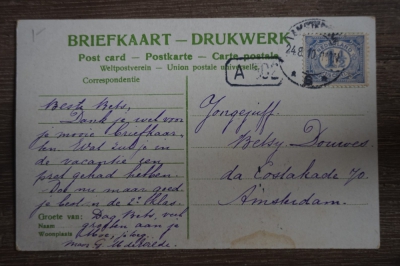 BRIEFKAART — DRUKWERK.
Post card — Postkarte — Carte postale
Weltpostverein — Union postale universelle
Correspondentie
A
Beste Bets,
Dank je wel voor
je mooie briefkaar-
ten. Wat zul je in
de vacantie een
pret gehad hebben.
nu maar goed
je best in de 2e klas.
Groete van: Dag Bets, veel
groeten aan je
Naam
Woonplaats
van G.
Jongejuff.
Betsy Douwes.
da Costakade 70.
Amsterdam.